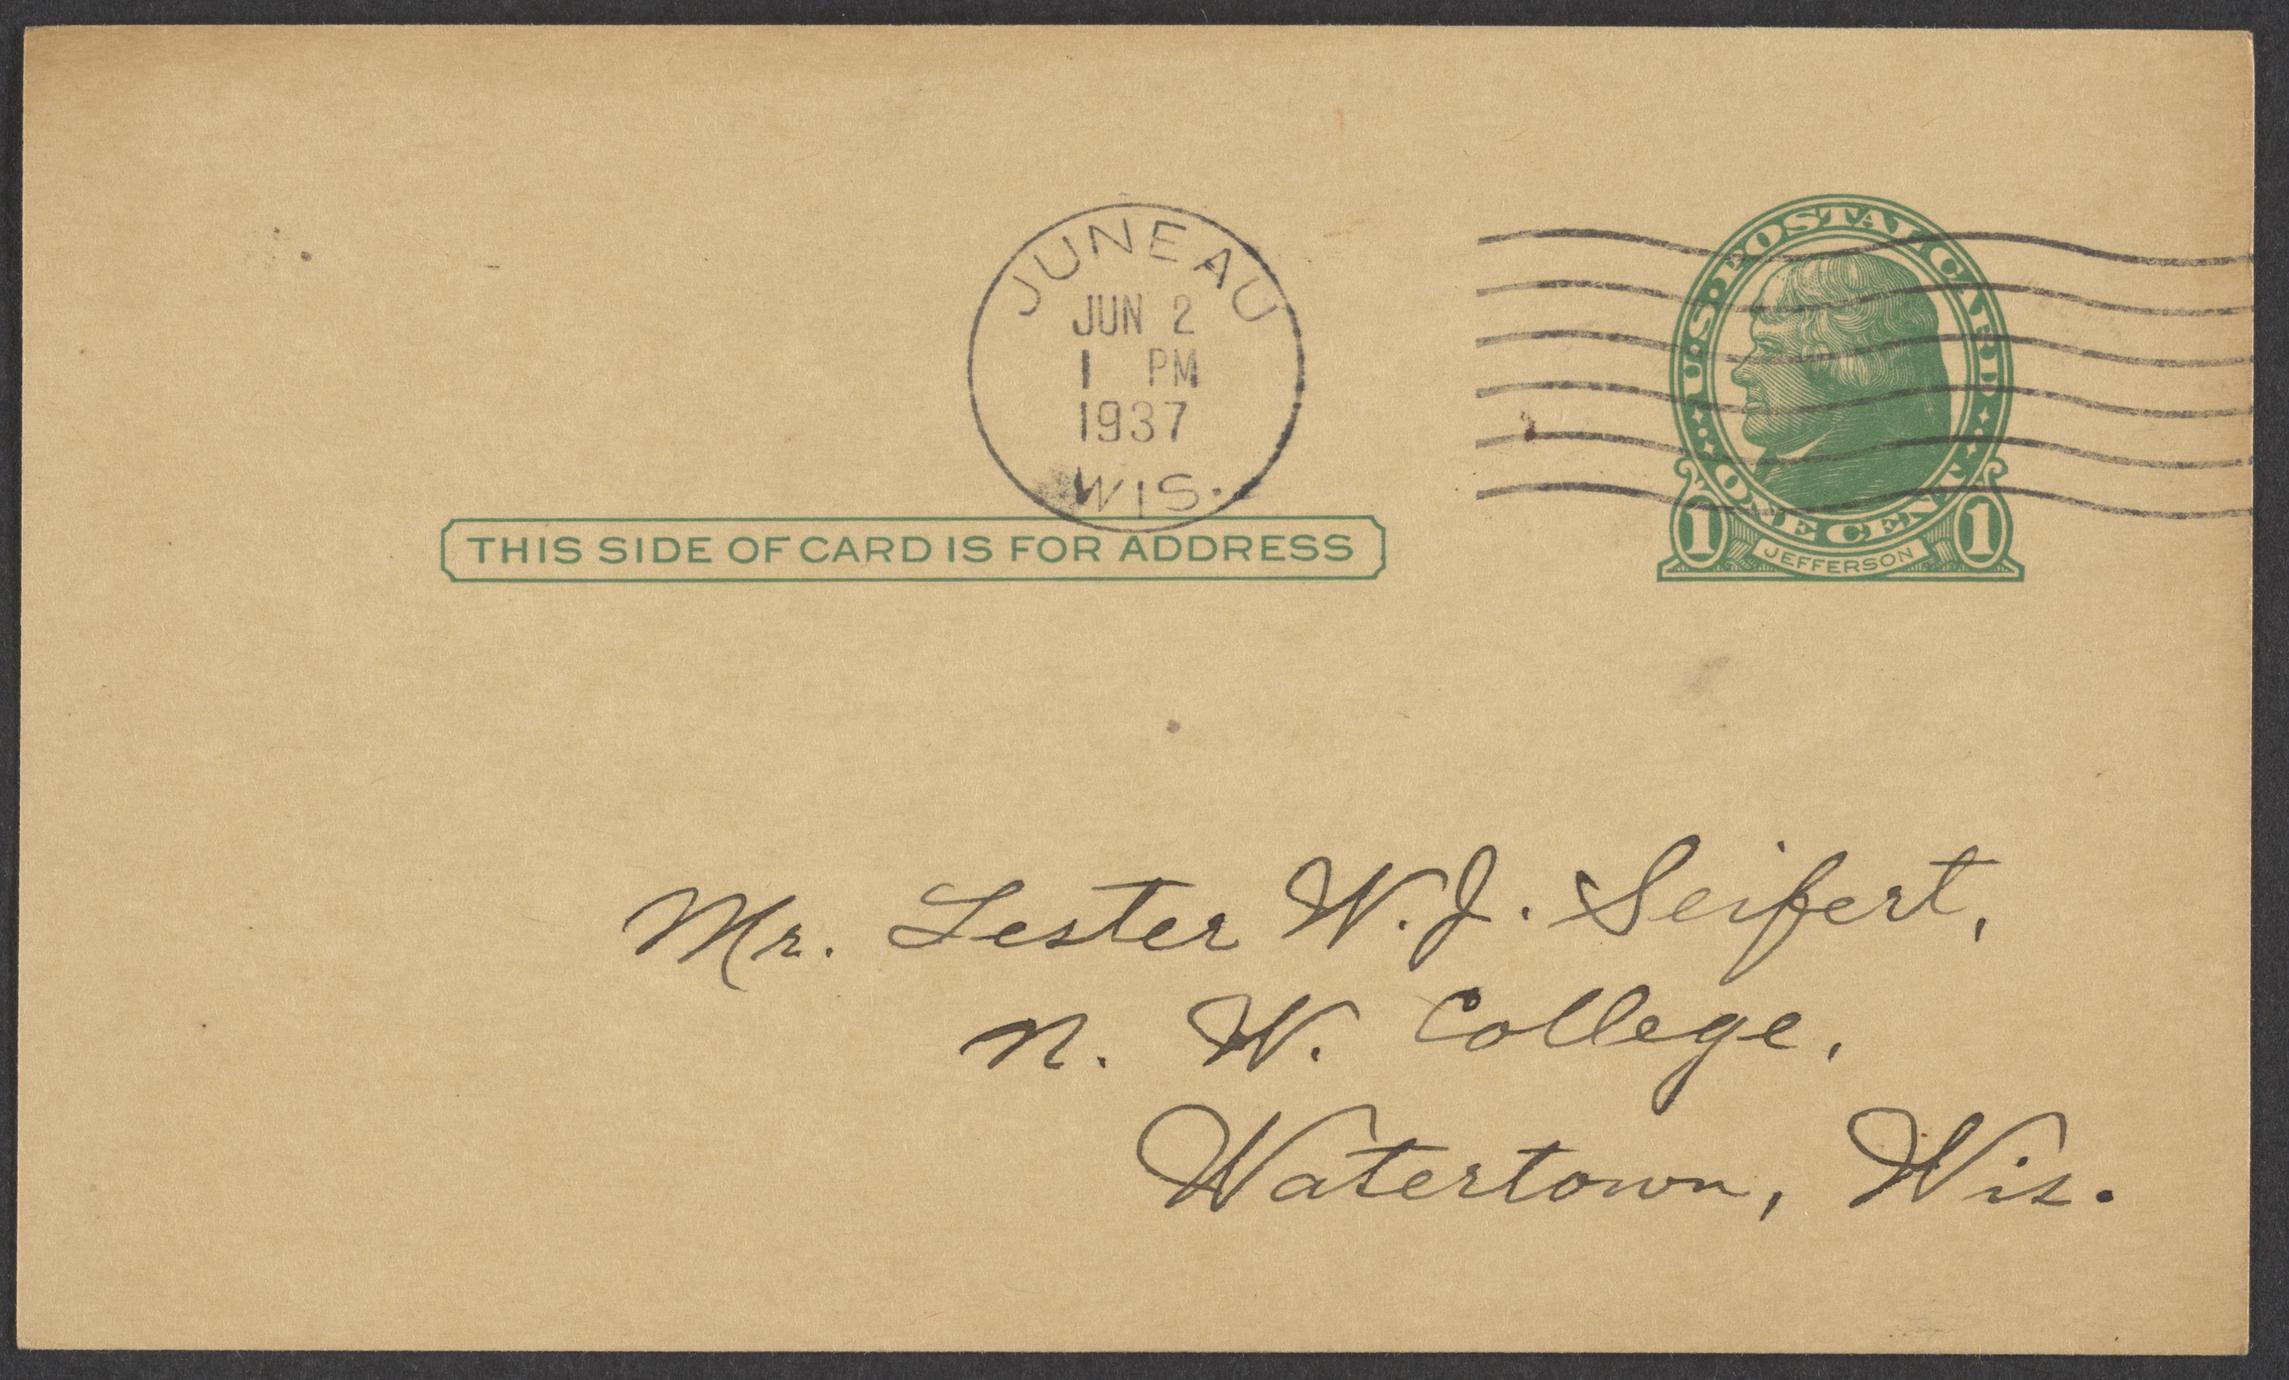 JUNEAU
JUN 2
1 PM
1937
WIS.
U.S. POSTAL CARD
ONE CENT
1 JEFFERSON 1
THIS SIDE OF CARD IS FOR ADDRESS
Mr. Lester W. J. Seifert,
N. W. College,
Watertown, Wis.